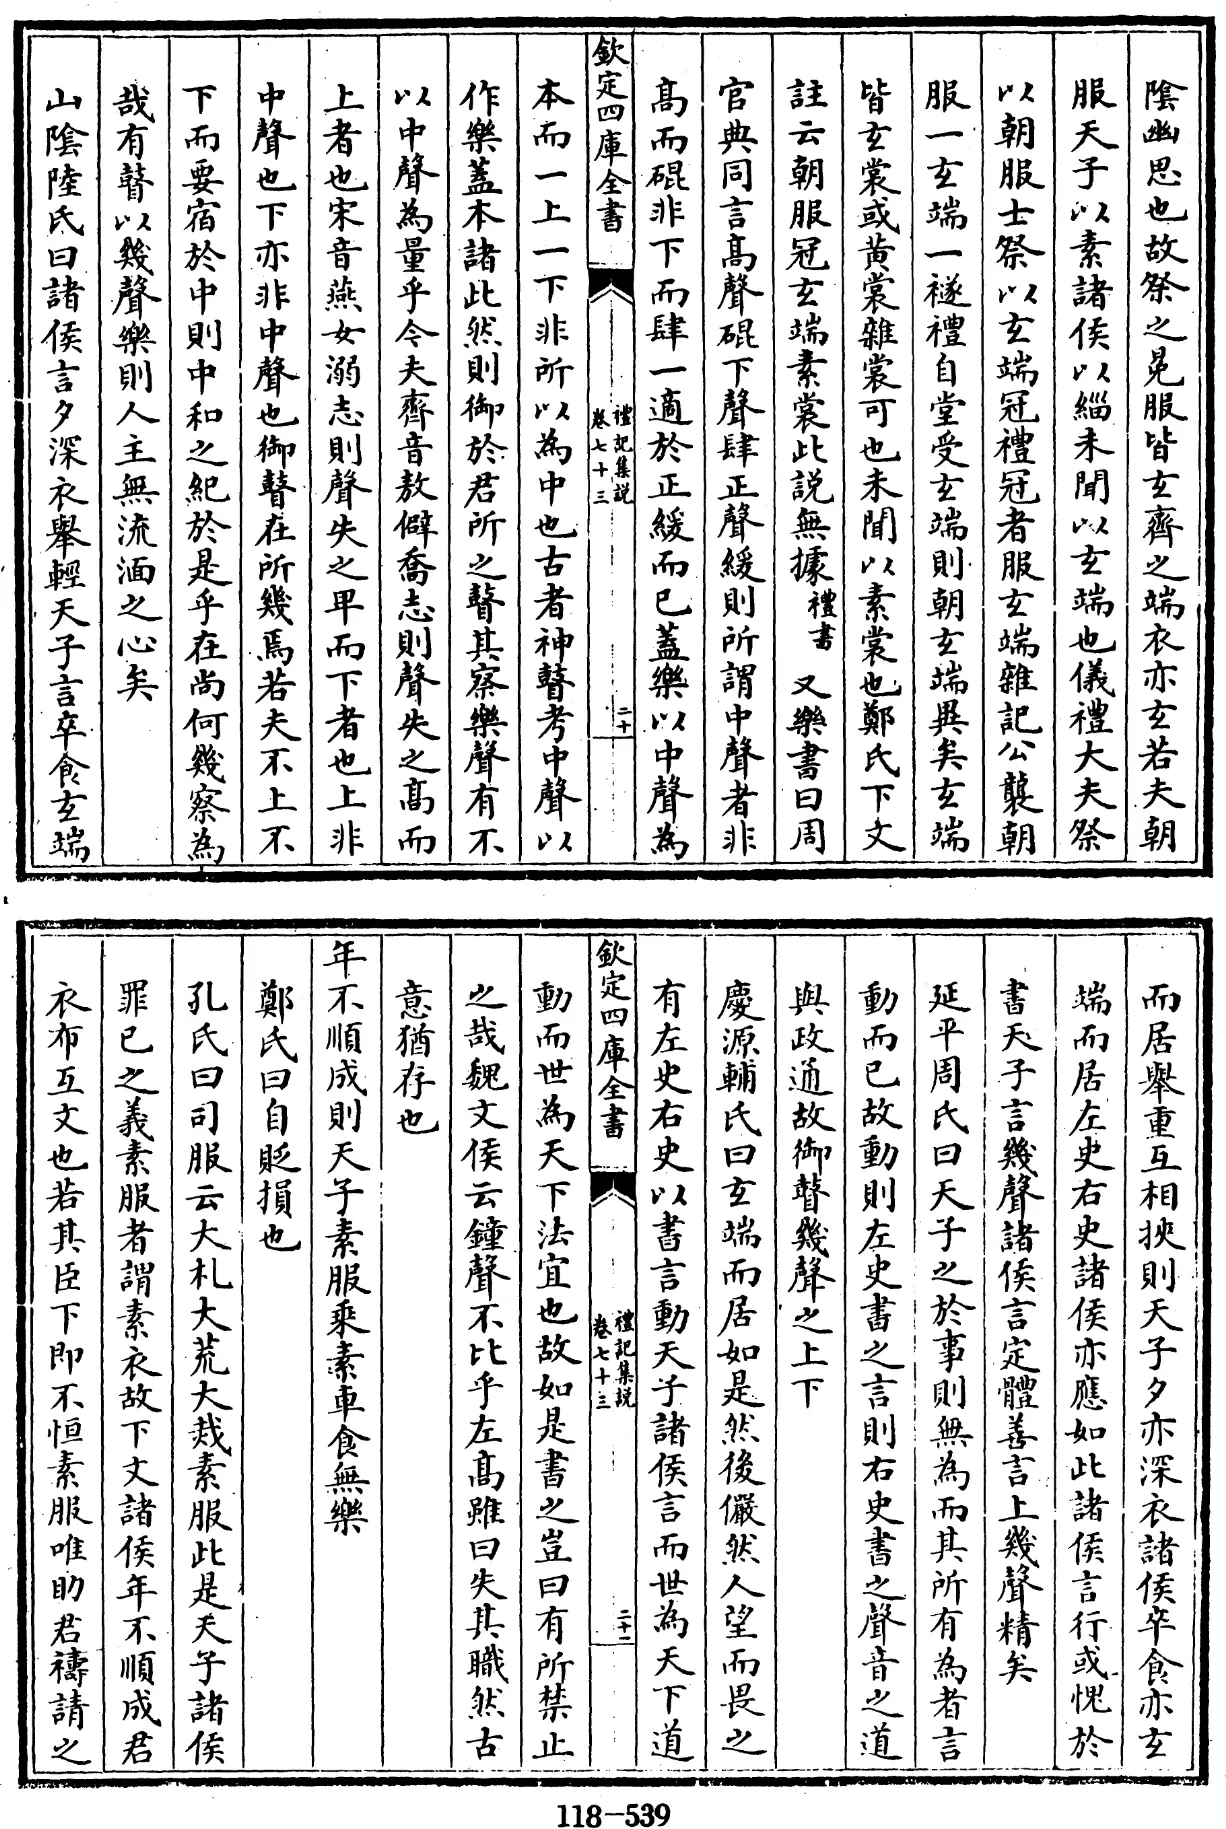 陰幽思也故祭之冕服皆玄齊之端衣亦玄若夫朝
服天子以素諸侯以緇未聞以玄端也儀禮大夫祭
以朝服士祭以玄端冠禮冠者服玄端雜記公襲朝
服一玄端一襚禮自堂受玄端則朝玄端異矣玄端
皆玄裳或黄裳雜裳可也未聞以素裳也鄭氏下文
註云朝服冠玄端素裳此説無據禮書又樂書曰周
官典同言髙聲硍下聲肆正聲緩則所謂中聲者非
髙而硍非下而肆一適於正緩而已蓋樂以中聲為
欽定四庫全書
禮記集説
卷七十三
二十
本而一上一下非所以為中也古者神瞽考中聲以
作樂蓋本諸此然則御於君所之瞽其察樂聲有不
以中聲為量乎今夫齊音敖僻喬志則聲失之髙而
上者也宋音燕女溺志則聲失之卑而下者也上非
中聲也下亦非中聲也御瞽在所幾焉若夫不上不
下而要宿於中則中和之紀於是乎在尚何幾察為
哉有瞽以幾聲樂則人主無流湎之心矣
山陰陸氏曰諸侯言夕深衣舉輕天子言卒食玄端
而居舉重互相挾則天子夕亦深衣諸侯卒食亦玄
端而居左史右史諸侯亦應如此諸侯言行或愧於
書天子言幾聲諸侯言定體善言上幾聲精矣
延平周氏曰天子之於事則無為而其所有為者言
動而已故動則左史書之言則右史書之聲音之道
與政通故御瞽幾聲之上下
慶源輔氏曰玄端而居如是然後儼然人望而畏之
有左史右史以書言動天子諸侯言而世為天下道
欽定四庫全書
禮記集説
卷七十三
二十一
動而世為天下法宜也故如是書之豈曰有所禁止
之哉魏文侯云鐘聲不比乎左髙雖曰失其職然古
意猶存也
年不順成則天子素服乘素車食無樂
鄭氏曰自貶損也
孔氏曰司服云大札大荒大烖素服此是天子諸侯
罪已之義素服者謂素衣故下文諸侯年不順成君
衣布互文也若其臣下即不恒素服唯助君禱請之
118-539